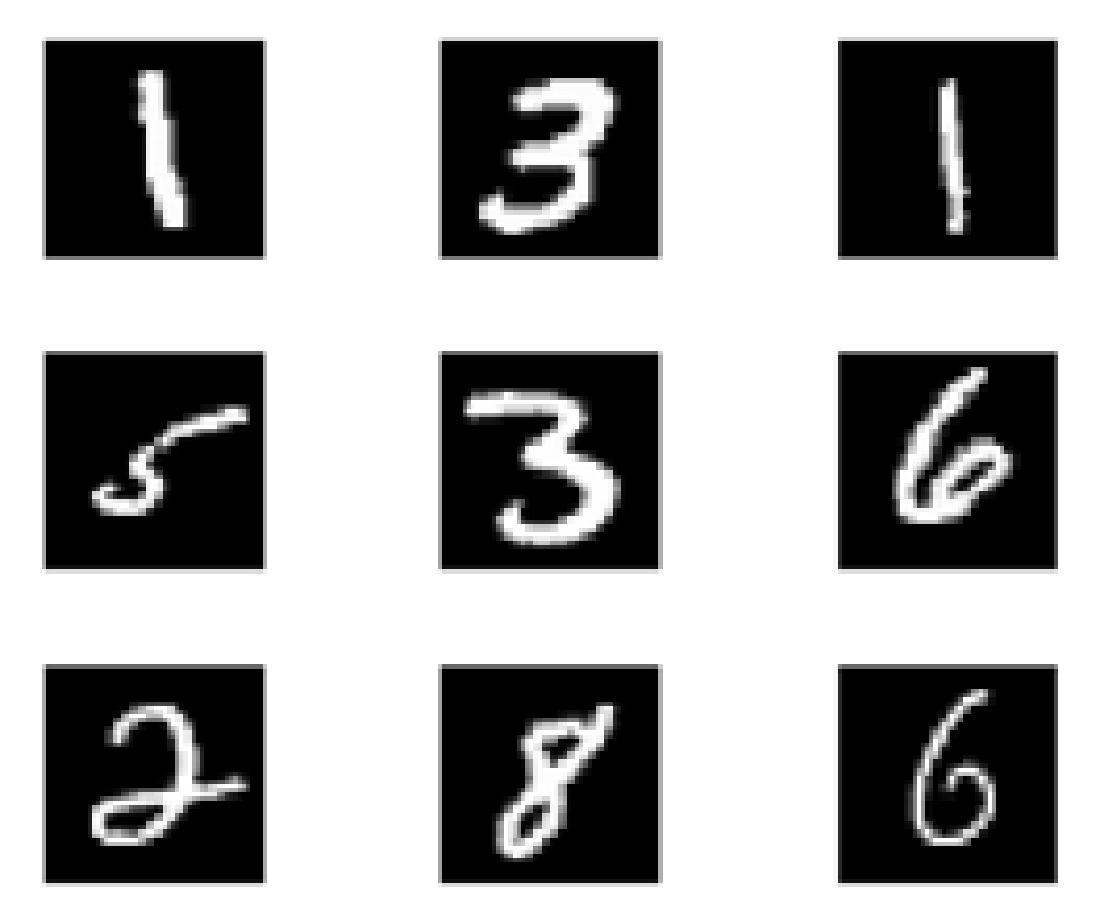 1 3 1
5 3 6
2 8 6